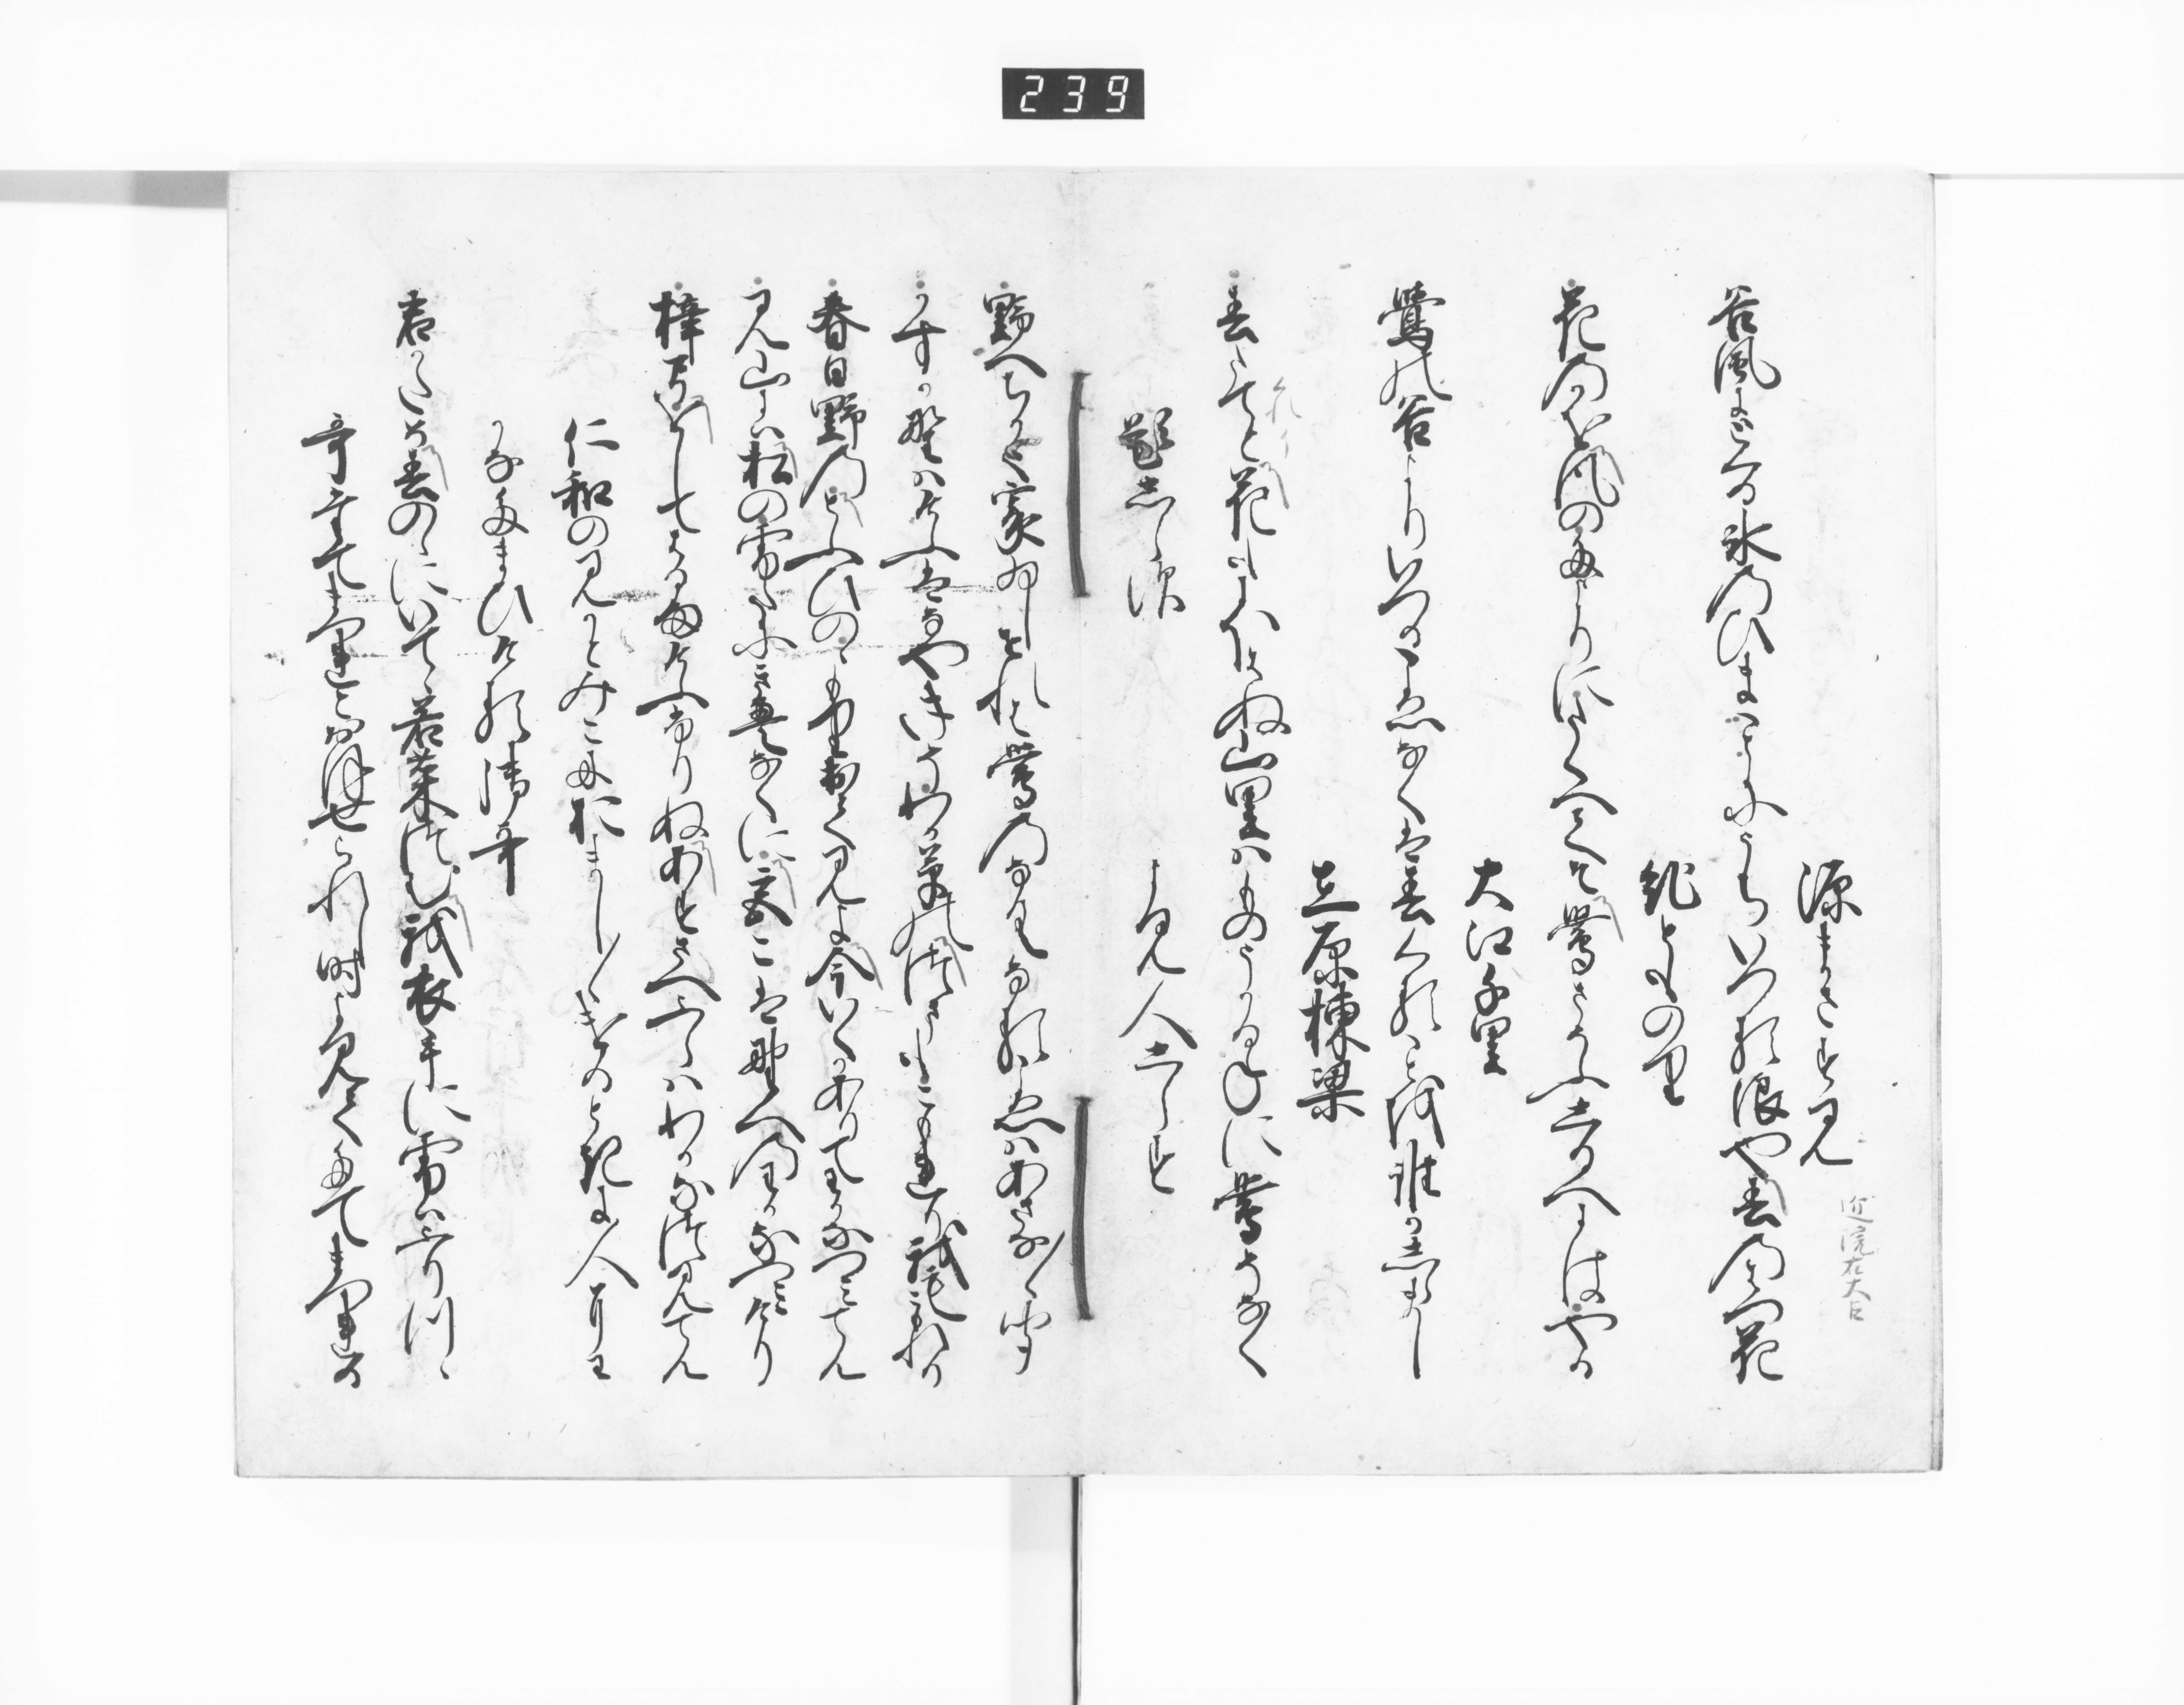 239
源まさすみ
近院右大臣
谷風にとくる氷のひまことにうちいつる浪や春のはつ花
紀とものり
花のかを風のたよりにたくへてそ鶯さそふしるへにはやる
大江千里
鶯の谷よりいつるこゑなくは春くることを誰かしらまし
在原棟梁
春たてと花もにほはぬ山里はものうかるねに鶯そなく
題しらす
よみ人しらす
野へちかく家ゐしをれは鶯のなくなるこゑはあさな/\きく
かすか野はけふはなやきそわか草のつまもこもれり我もこもれり
春日野のとふひの野守出てみよ今いくかありてわかなつみてん
み山には松の雪たにきえなくに宮こは野へのわかなつみけり
梓弓をしてはる雨けふふりぬあすさへふらはわかなつみてん
仁和のみかとみこにおましましける時に人に
わかなたまひける御哥
君かため春のゝにいてゝ若菜つむ我衣手に雪はふりつゝ
哥たてまつれとおほせられし時よみてたてまつれる